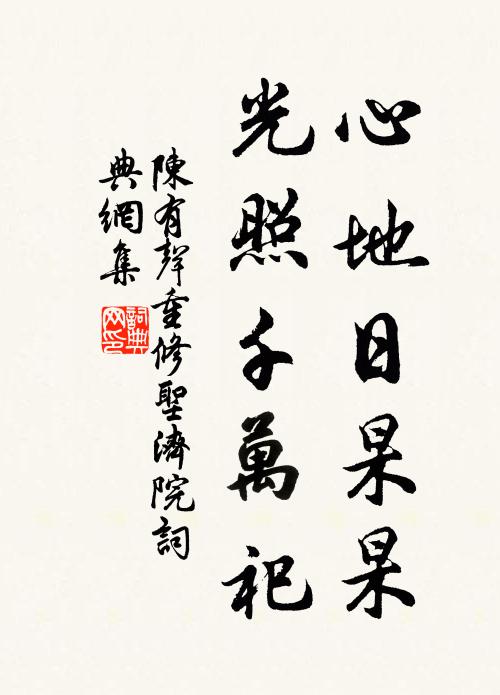 心地日杲杲
光照千萬祀
陳有聲重修聖濟院詞
典網集
詞典网印